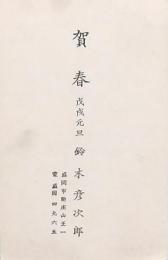 賀春
戊戌元旦
鈴木彦次郎
盛岡市新庄山王一
電盛岡四九六五